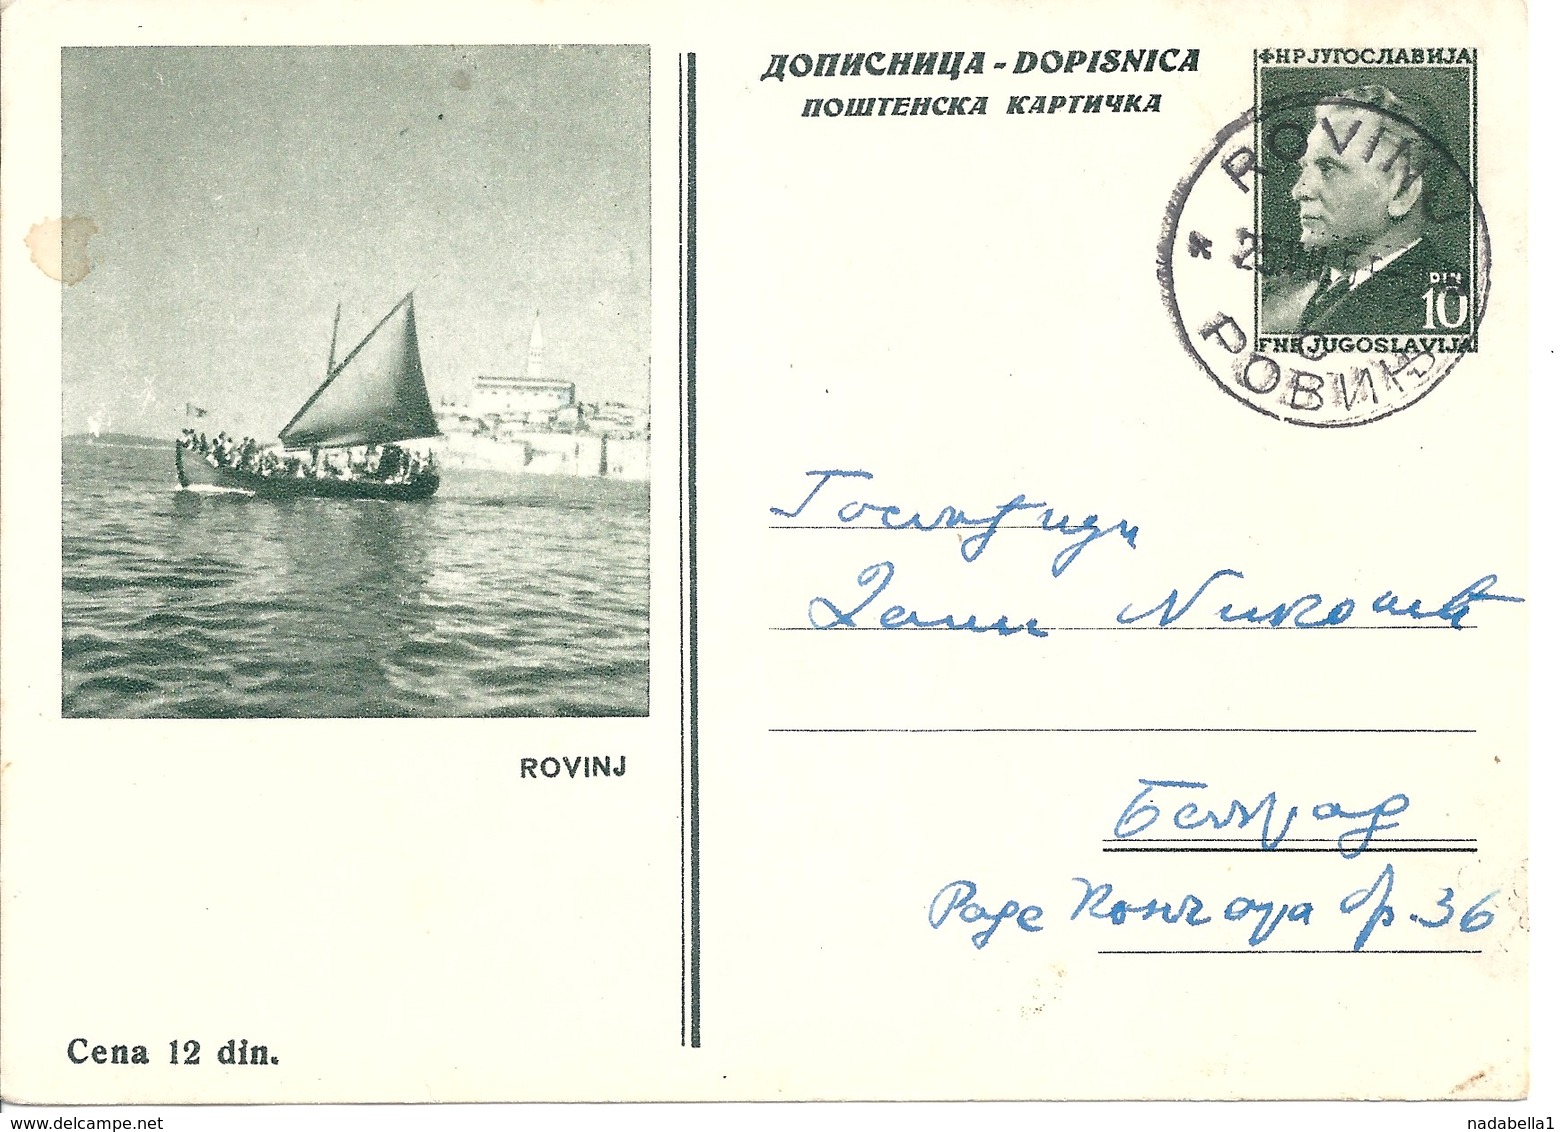 ДОПИСНИЦА - DOPISNICA
ПОШТЕНСКА КАРТИЧКА
ФНР ЈУГОСЛАВИЈА
DIN
10
FNR JUGOSLAVIJA
ROVINJ
РОВИЊ
Госпођици
Николић
Београд
Раде Кончара бр. 36
ROVINJ
Cena 12 din.
www.delcampe.net
nadabella1